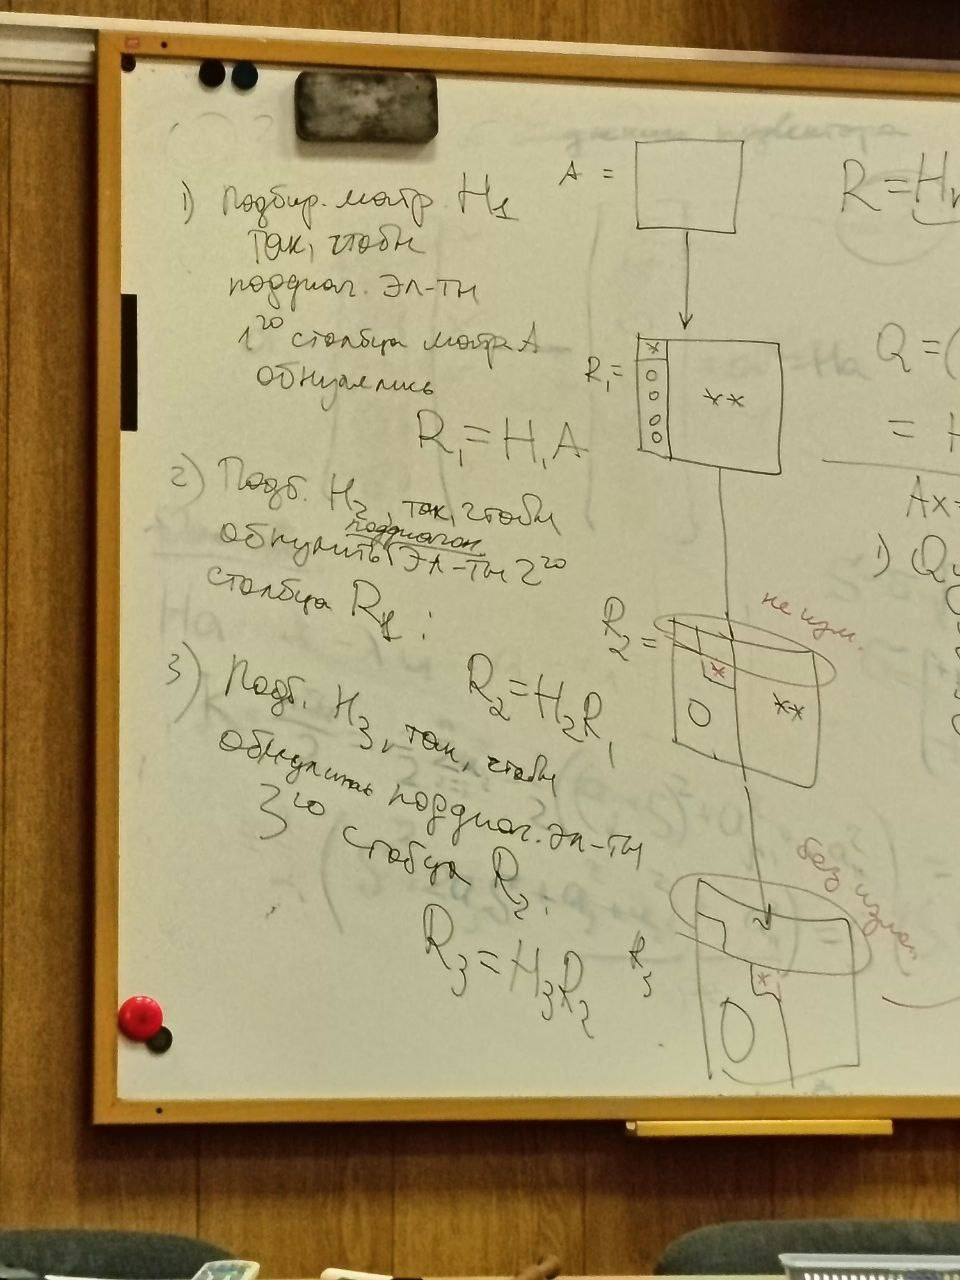 1) Подбир. матр. H₁
так, чтобы
поддиаг. эл-ты
1го столбца матр A
обнулились
R₁ = H₁A
2) Подб. H₂, так, чтобы
обнулить поддиагон. эл-ты 2го
столбца R₁ :
R₂ = H₂R₁
3) Подб. H₃, так, чтобы
обнулить поддиаг. эл-ты
3го столбца R₂.
R₃ = H₃R₂
A =
R₁ =
*
0
0
0
0
**
R₂ =
не изм.
*
0
**
R₃
без измен.
*
0
R = H
Q = (
= H
Ax =
1) Q